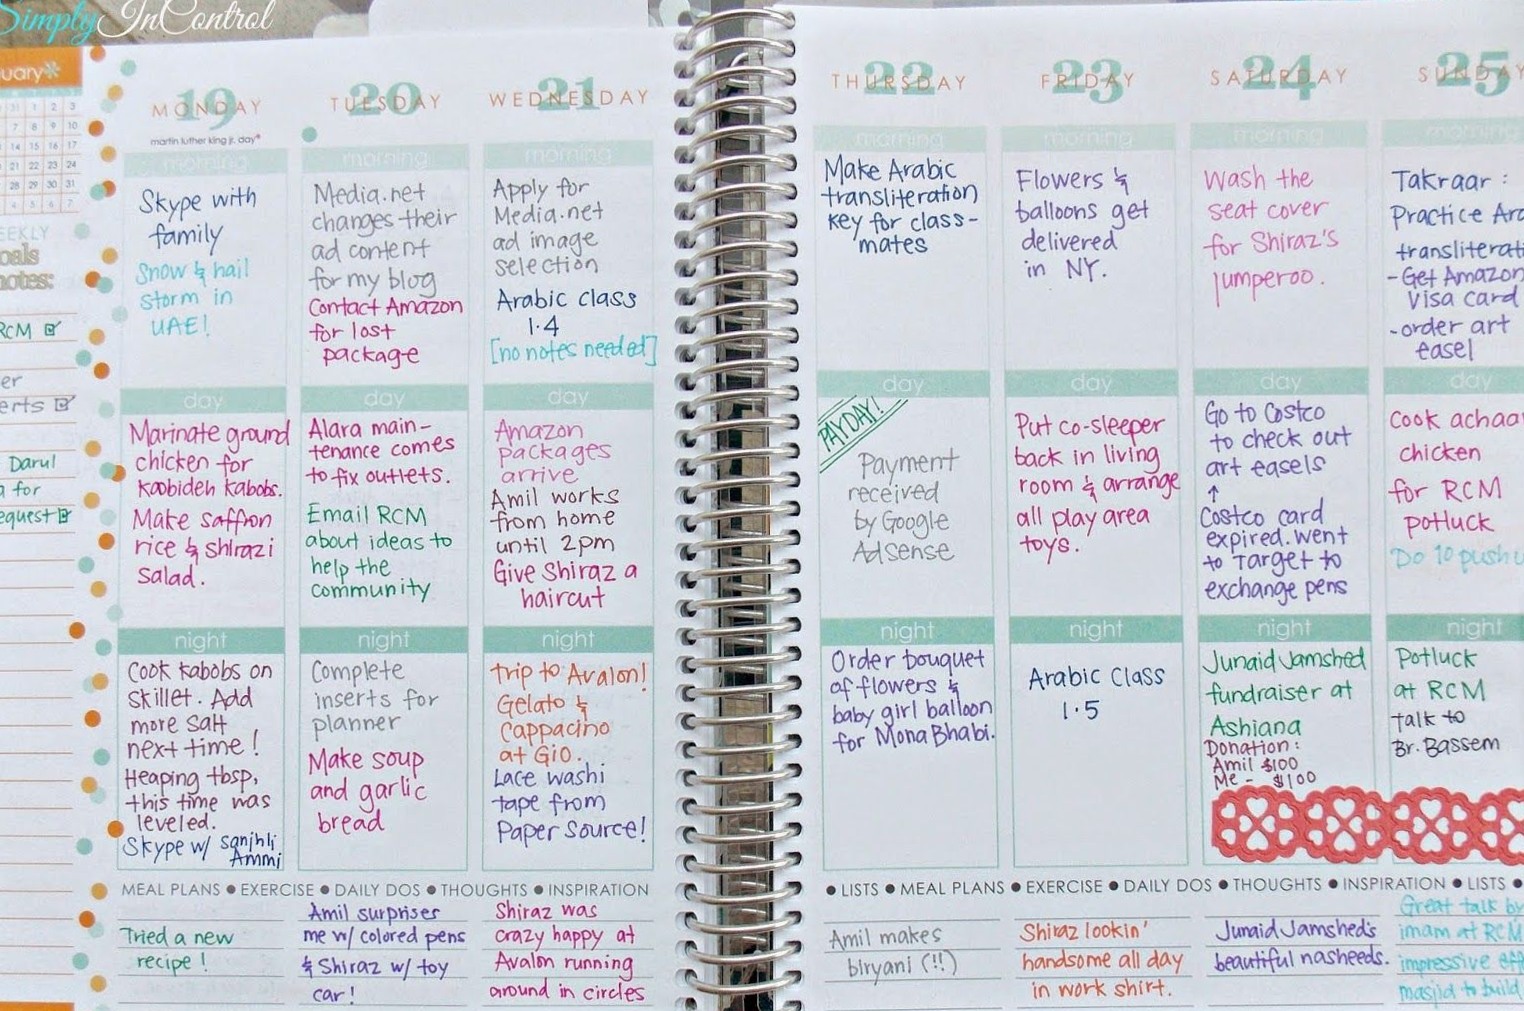 SimplyInControl
uary
31 1 2 3
7 8 9 10
14 15 16 17
21 22 23 24
28 29 30 31
4 5 6 7
EEKLY
oals
notes:
RCM
er
erts
Darul
a for
equest
19
MONDAY
martin luther king jr. day*
morning
Skype with
family
Snow & hail
storm in
UAE!
day
Marinate ground
chicken for
koobideh kabobs.
Make saffron
rice & Shirazi
salad.
night
Cook kabobs on
skillet. Add
more salt
next time!
Heaping tbsp,
this time was
leveled.
Skype w/ Sanjhli
Ammi
20
TUESDAY
morning
Media.net
changes their
ad content
for my blog
Contact Amazon
for lost
package
day
Alara main-
tenance comes
to fix outlets.
Email RCM
about ideas to
help the
community
night
Complete
inserts for
planner
Make soup
and garlic
bread
21
WEDNESDAY
morning
Apply for
Media.net
ad image
selection
Arabic class
1.4
[no notes needed]
day
Amazon
packages
arrive
Amil works
from home
until 2pm
Give Shiraz a
haircut
night
Trip to Avalon!
Gelato &
Cappacino
at Gio.
Lace washi
tape from
Paper Source!
MEAL PLANS ● EXERCISE ● DAILY DOS ● THOUGHTS ● INSPIRATION
Tried a new
recipe!
Amil surprises
me w/ colored pens
& Shiraz w/ toy
car!
Shiraz was
crazy happy at
Avalon running
around in circles
22
THURSDAY
morning
Make Arabic
transliteration
key for class-
mates
day
PAYDAY!
Payment
received
by Google
AdSense
night
Order bouquet
of flowers &
baby girl balloon
for Mona Bhabi.
23
FRIDAY
morning
Flowers &
balloons get
delivered
in NY.
day
Put co-sleeper
back in living
room & arrange
all play area
toys.
night
Arabic Class
1.5
24
SATURDAY
morning
Wash the
seat cover
for Shiraz's
jumperoo.
day
Go to Costco
to check out
art easels
↑
Costco card
expired. Went
to Target to
exchange pens
night
Junaid Jamshed
fundraiser at
Ashiana
Donation:
Amil $100
Me - $100
25
SUNDAY
morning
Takraar:
Practice Ara
transliterati
- Get Amazon
Visa card
- order art
easel
day
Cook achaa
chicken
for RCM
potluck
Do 10 push u
night
Potluck
at RCM
talk to
Br. Bassem
● LISTS ● MEAL PLANS ● EXERCISE ● DAILY DOS ● THOUGHTS ● INSPIRATION ● LISTS ●
Amil makes
biryani (!!)
Shiraz lookin'
handsome all day
in work shirt.
Junaid Jamshed's
beautiful nasheeds.
Great talk by
imam at RCM
impressive eff
masjid to build